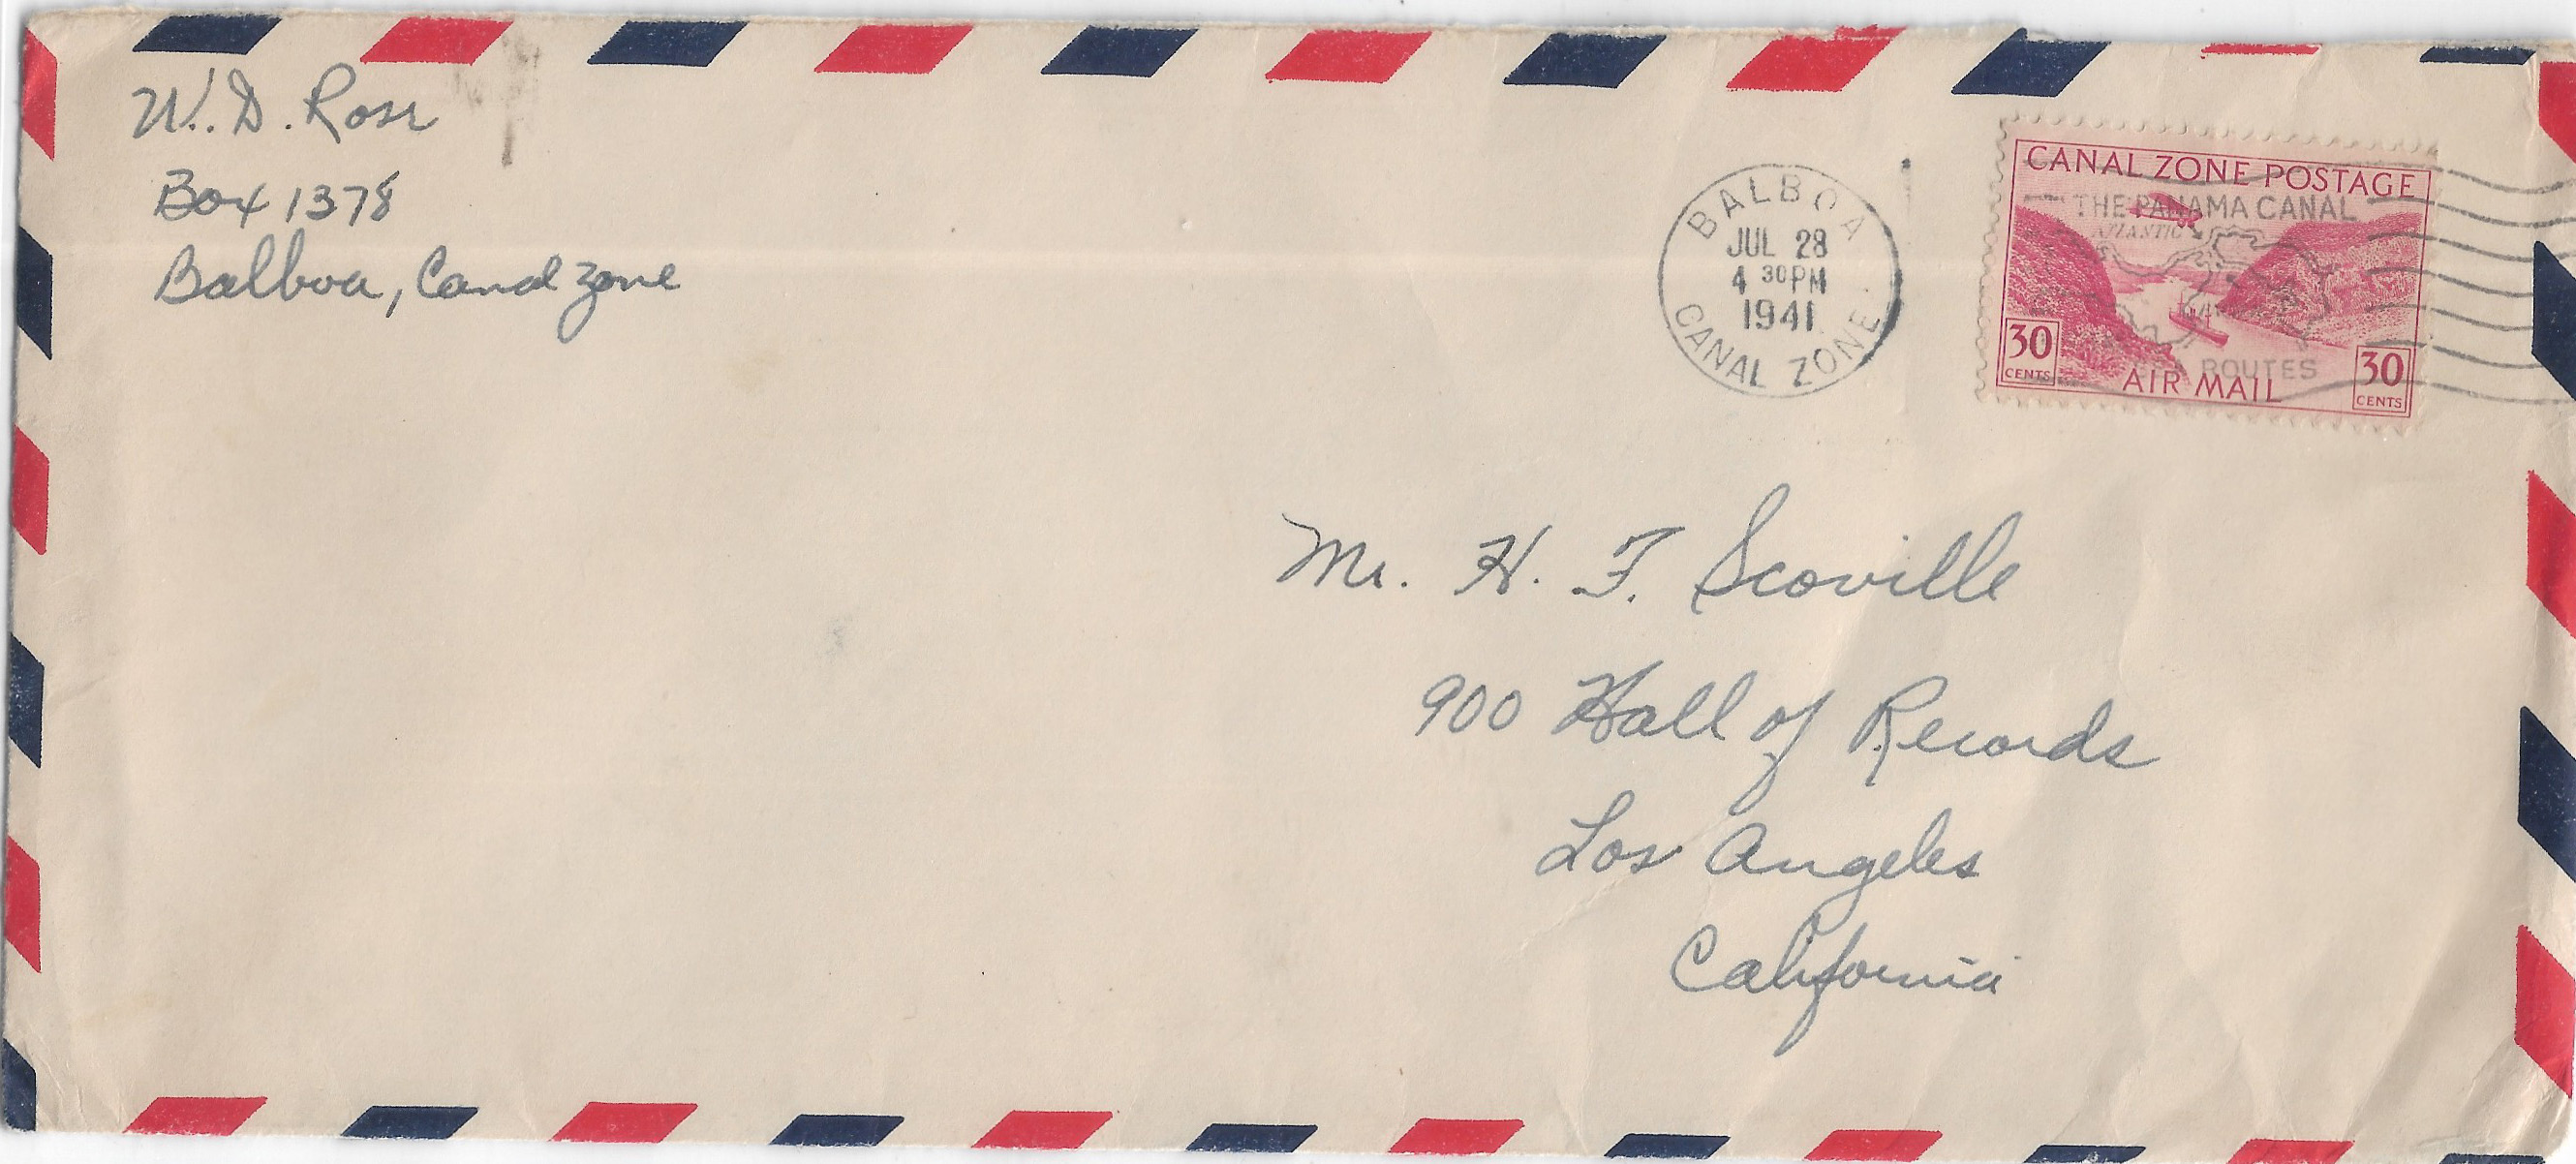 W. D. Rose
Box 1378
Balboa, Canal Zone
BALBOA
JUL 28
4 30PM
1941
CANAL ZONE
CANAL ZONE POSTAGE
THE PANAMA CANAL
ATLANTIC
ROUTES
30 CENTS
AIR MAIL
30 CENTS
Mr. H. F. Scoville
900 Hall of Records
Los Angeles
California